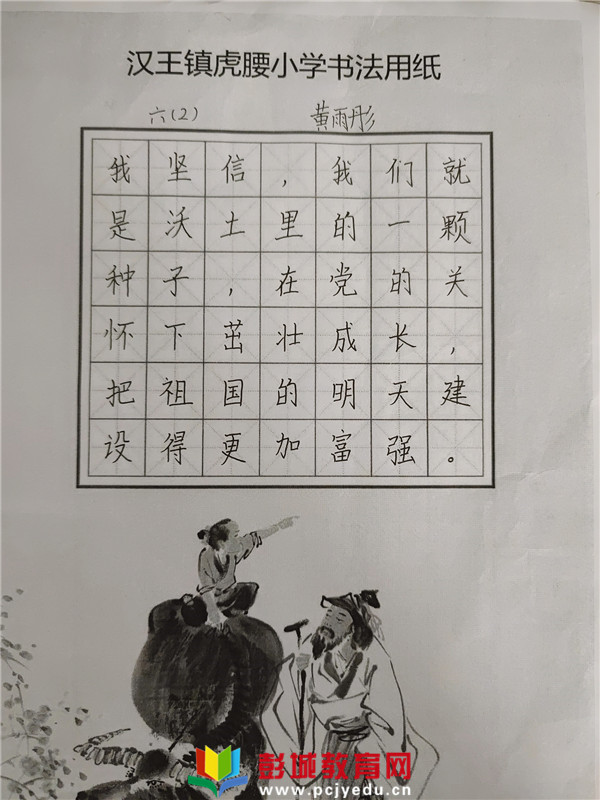 汉王镇虎腰小学书法用纸
六(2) 黄雨彤
我坚信，我们就
是沃土里的一颗
种子，在党的关
怀下茁壮成长，
把祖国的明天建
设得更加富强。
彭城教育网
www.pcjyedu.cn